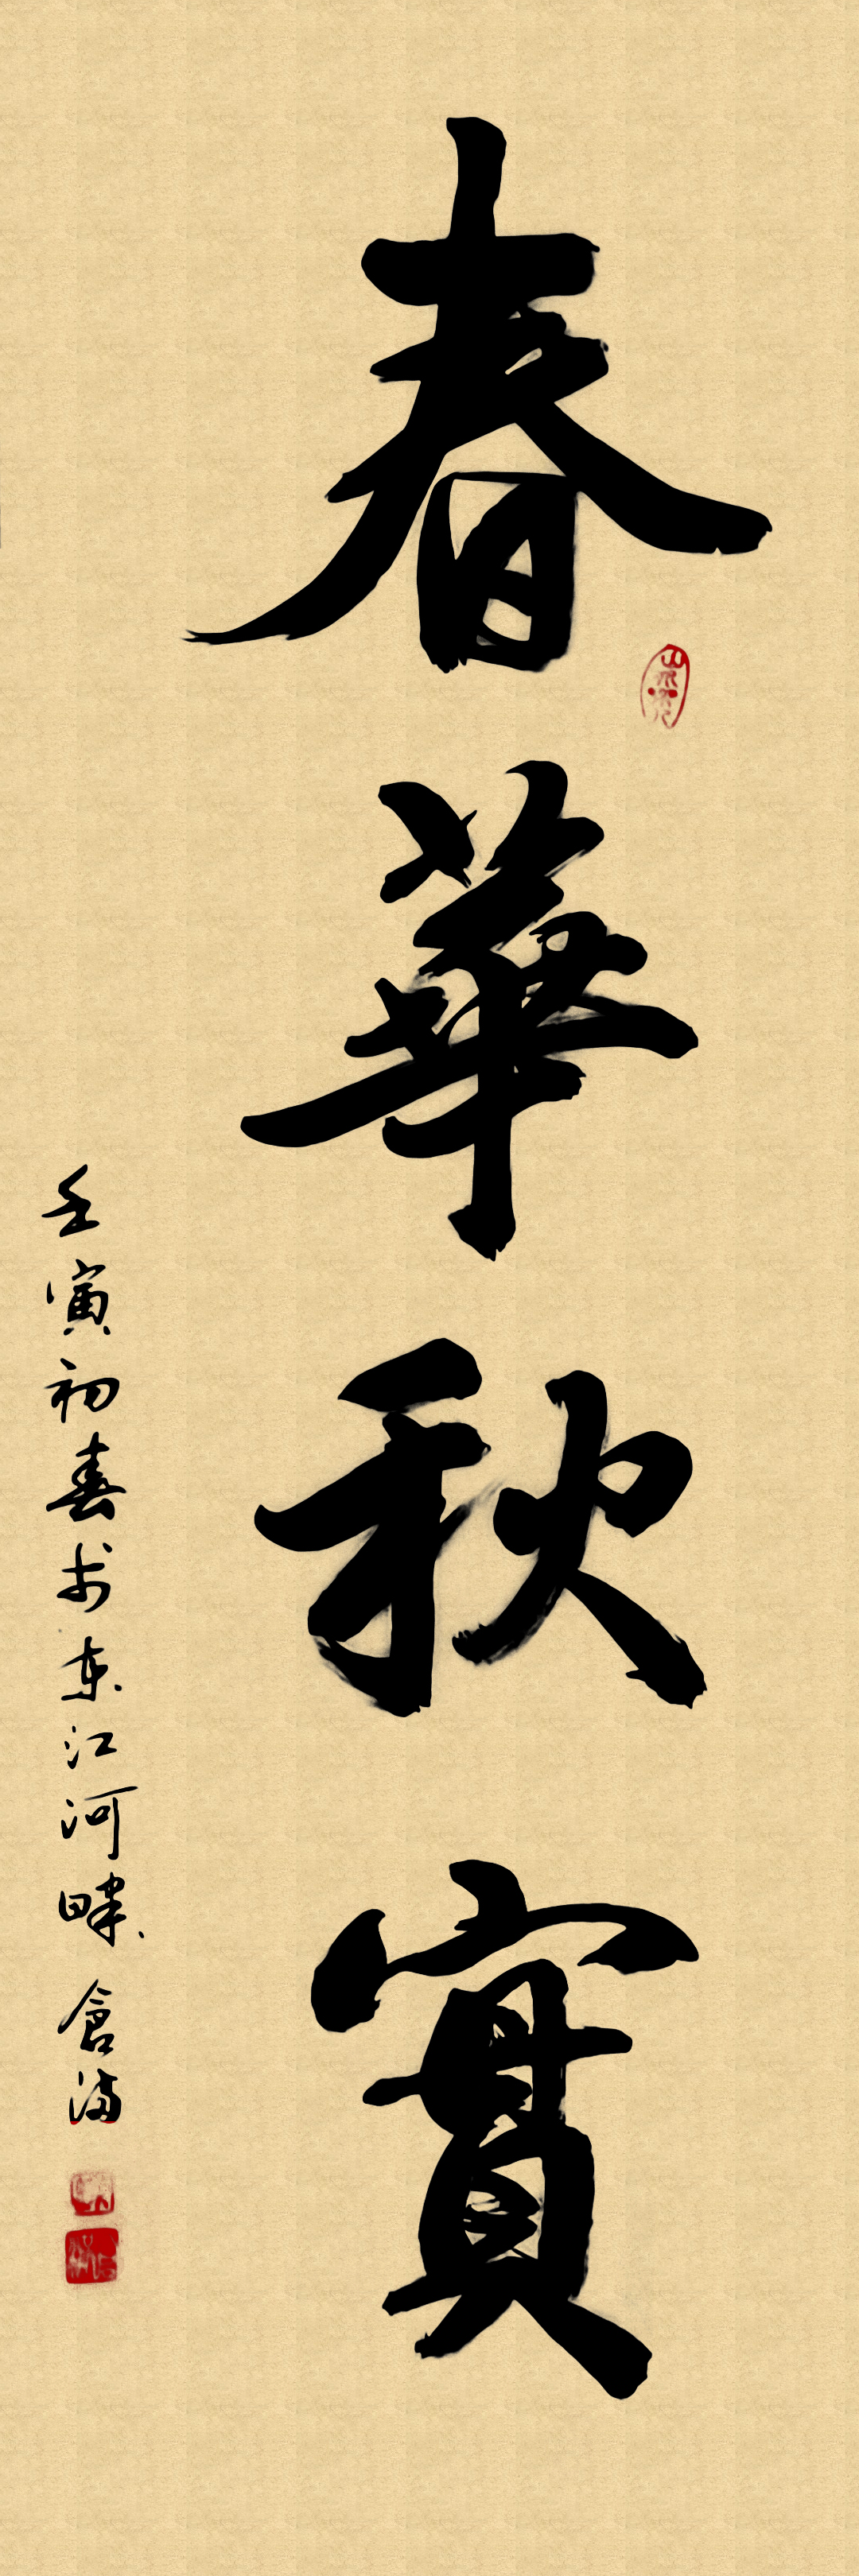 春華秋實
壬寅初春书於东江河畔